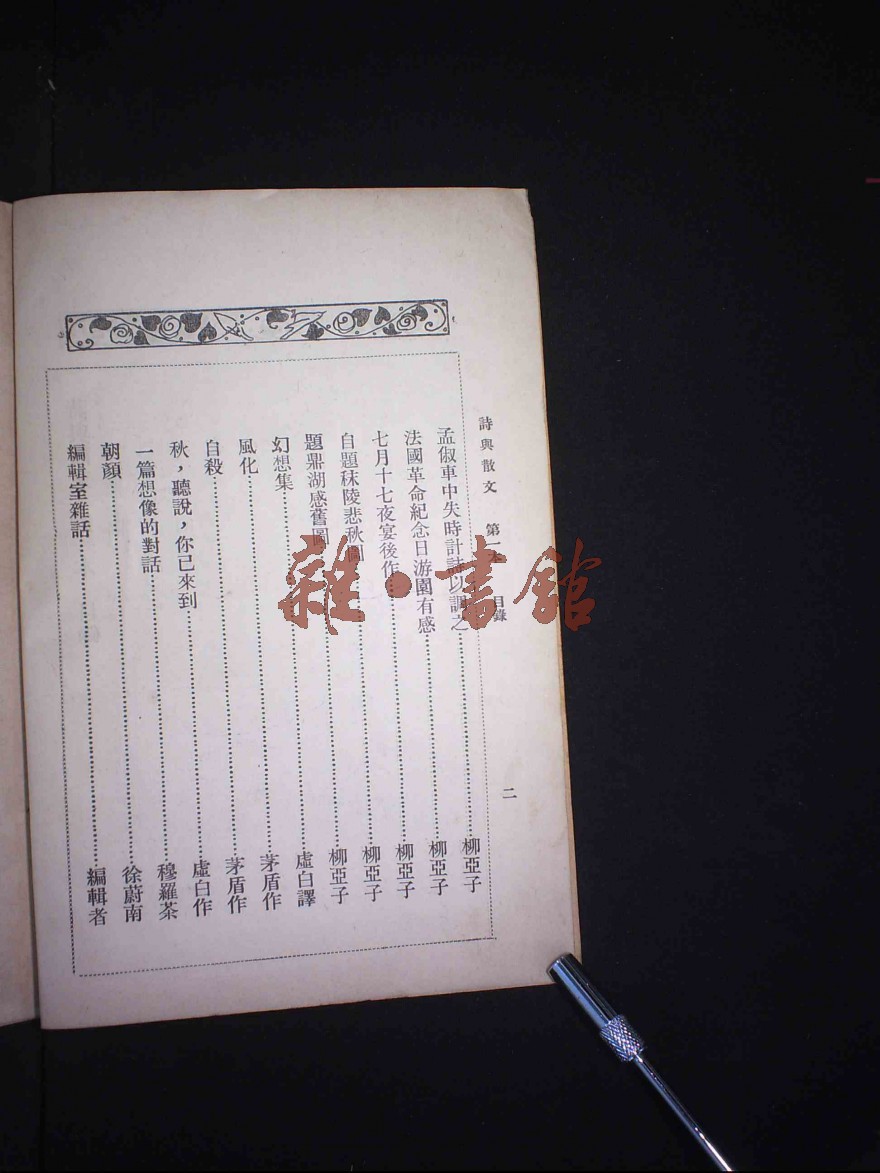 詩與散文 第一 目錄 二
孟俶車中失時計詩以調之……柳亞子
法國革命紀念日游園有感……柳亞子
七月十七夜宴後作……柳亞子
自題秣陵悲秋圖……柳亞子
題鼎湖感舊圖……柳亞子
幻想集……虛白譯
風化……茅盾作
自殺……茅盾作
秋，聽說，你已來到……虛白作
一篇想像的對話……穆羅茶
朝顏……徐蔚南
編輯室雜話……編輯者
雜·書館